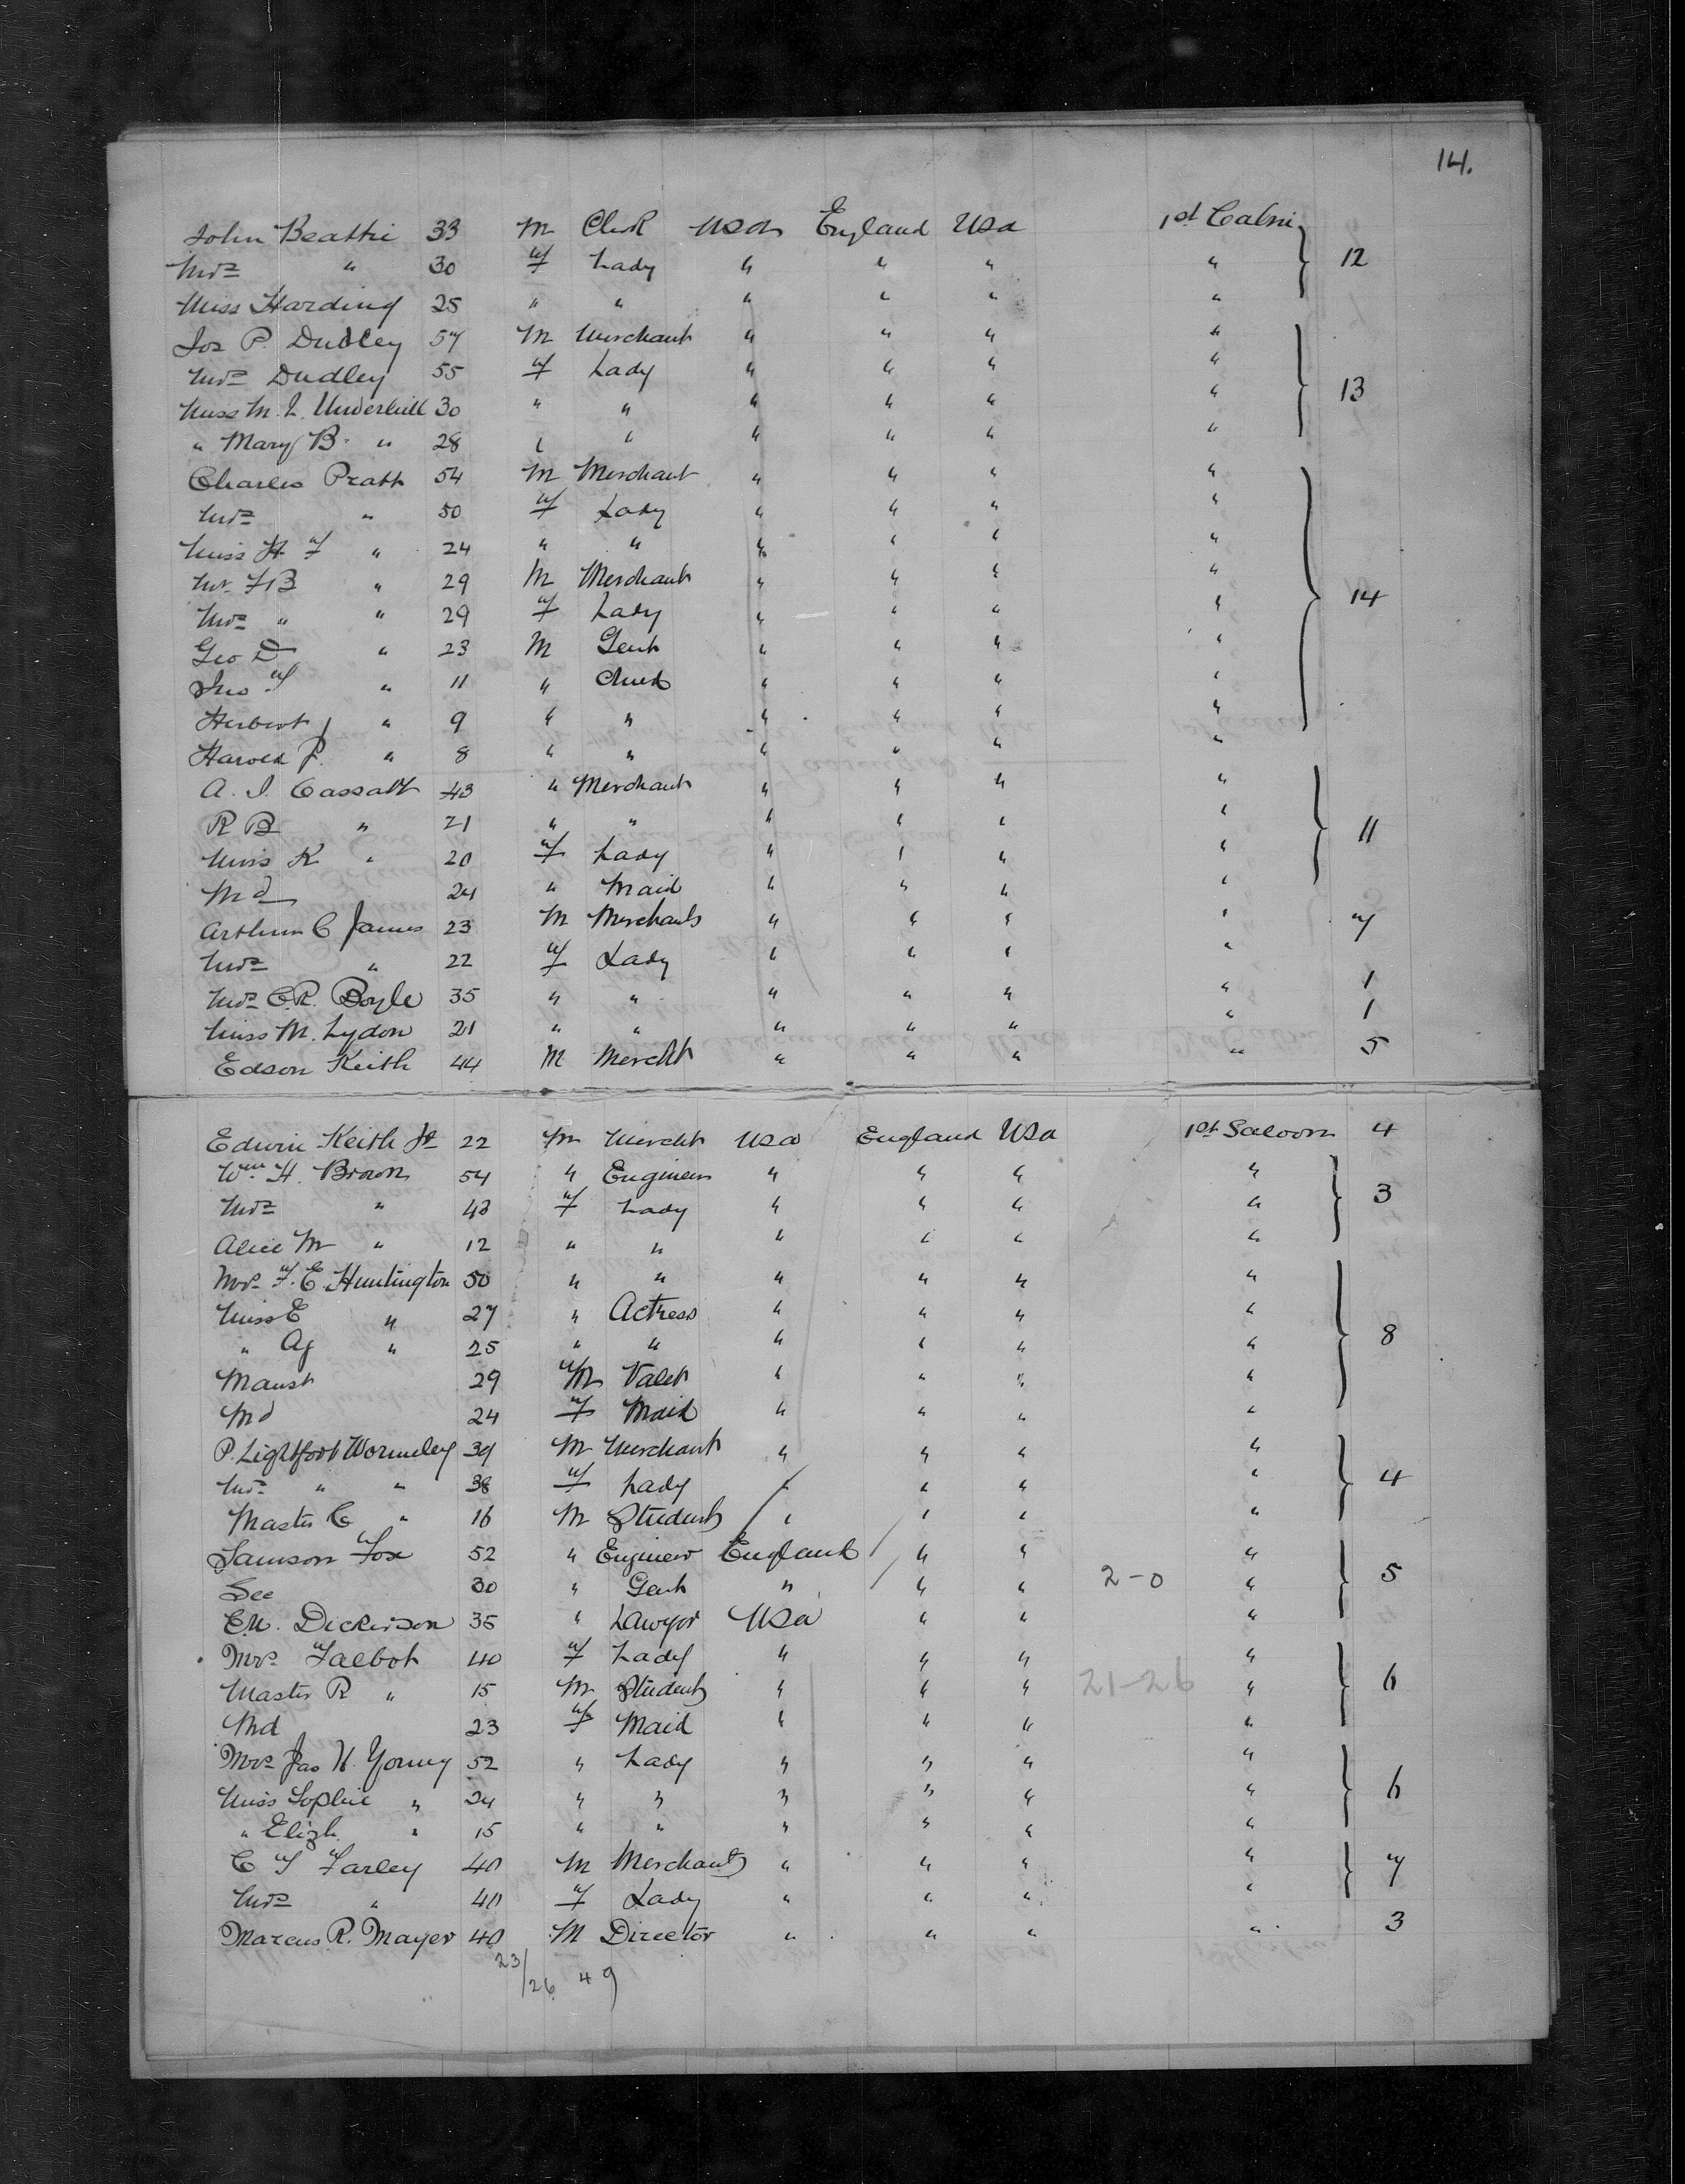 14.
John Beattie 33 M Clerk USA England USA 1st Cabin
Mrs " 30 F Lady " " " " 12
Miss Harding 25 " " " " " "
Jos P. Dudley 57 M Merchant " " " "
Mrs Dudley 55 F Lady " " " "
Miss M. L. Underhill 30 " " " " " " 13
" Mary B. " 28 " " " " " "
Charles Pratt 54 M Merchant " " " "
Mrs " 50 F Lady " " " "
Miss H F " 24 " " " " " "
Mr. FB " 29 M Merchant " " " "
Mrs " " 29 F Lady " " " " 14
Geo D " 23 M Gent " " " "
Jno T " 11 " Child " " " "
Herbert " 9 " " " " " "
Harold P. " 8 " " " " " "
A. J. Cassatt 43 " Merchant " " " "
R B " 21 " " " " " " 11
Miss K " 20 F Lady " " " "
Md 24 " Maid " " " "
Arthur C James 23 M Merchant " " " " 7
Mrs " 22 F Lady " " " "
Mrs C.R. Boyle 35 " " " " " " 1
Miss M. Lydon 21 " " " " " " 1
Edson Keith 44 M Mercht " " " " 5
Edwin Keith Jr 22 M Mercht USA England USA 1st Saloon 4
Wm H. Brown 54 " Engineer " " " "
Mrs " 43 F Lady " " " " 3
Alice M " 12 " " " " " "
Mrs F. E. Huntington 50 " " " " " "
Miss E " 27 " Actress " " " "
" Ag " 25 " " " " " " 8
Manst 29 M Valet " " " "
Md 24 F Maid " " " "
P. Lightfoot Wormeley 39 M Merchant " " " "
Mrs " " 38 F Lady " " " " 4
Master C " 16 M Student " " " "
Samson Fox 52 " Engineer England " " "
Sec 30 " Gent " " " 2-0 " 5
E.N. Dickerson 35 " Lawyer USA " " "
Mrs Talbot 40 F Lady " " " "
Master R " 15 M Student " " " 21-26 " 6
Md 23 F Maid " " " "
Mrs Jas H. Young 52 " Lady " " " "
Miss Sophie " 24 " " " " " " 6
" Elizh. " 15 " " " " " "
C T Farley 40 M Merchant " " " " 7
Mrs " 40 F Lady " " " "
Marcus R. Mayer 40 M Director " " " " 3
23/26 49